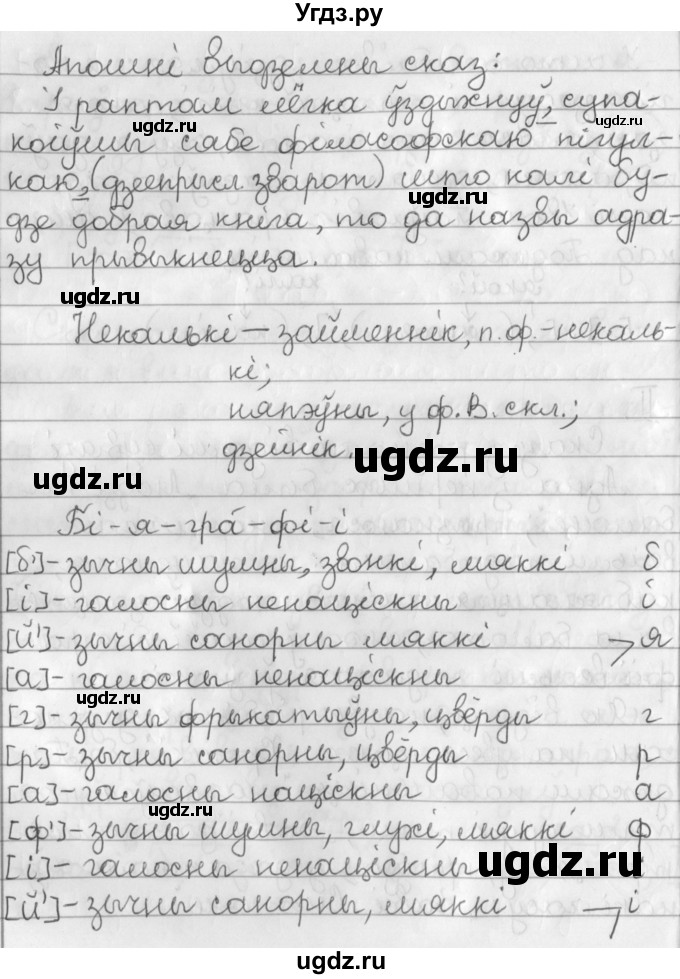 Угдз.ру
Апошні выдзелены сказ:
І раптам лёгка ўздыхнуў, супа-
коіўшы сябе філасофскаю пігул-
каю, (дзеепрысл. зварот) што калі бу-
дзе добрая кніга, то да назвы адра-
зу прывыкнецца.
Некалькі – займеннік, п.ф.-некаль-
кі;
няпэўны, у ф. В. скл.;
дзейнік.
Бі-я-гра́-фі-і
[б']-зычны шумны, звонкі, мяккі б
[і]-галосны ненаціскны і
[й']-зычны санорны мяккі я
[а]-галосны ненаціскны
[г]-зычны фрыкатыўны, цвёрды г
[р]-зычны санорны, цвёрды р
[а]-галосны націскны а
[ф']-зычны шумны, глухі, мяккі ф
[і]-галосны ненаціскны
[й']-зычны санорны, мяккі і
ugdz.ru
ugdz.ru
ugdz.ru
ugdz.ru
ugdz.ru
ugdz.ru
ugdz.ru
ugdz.ru
ugdz.ru
ugdz.ru
ugdz.ru